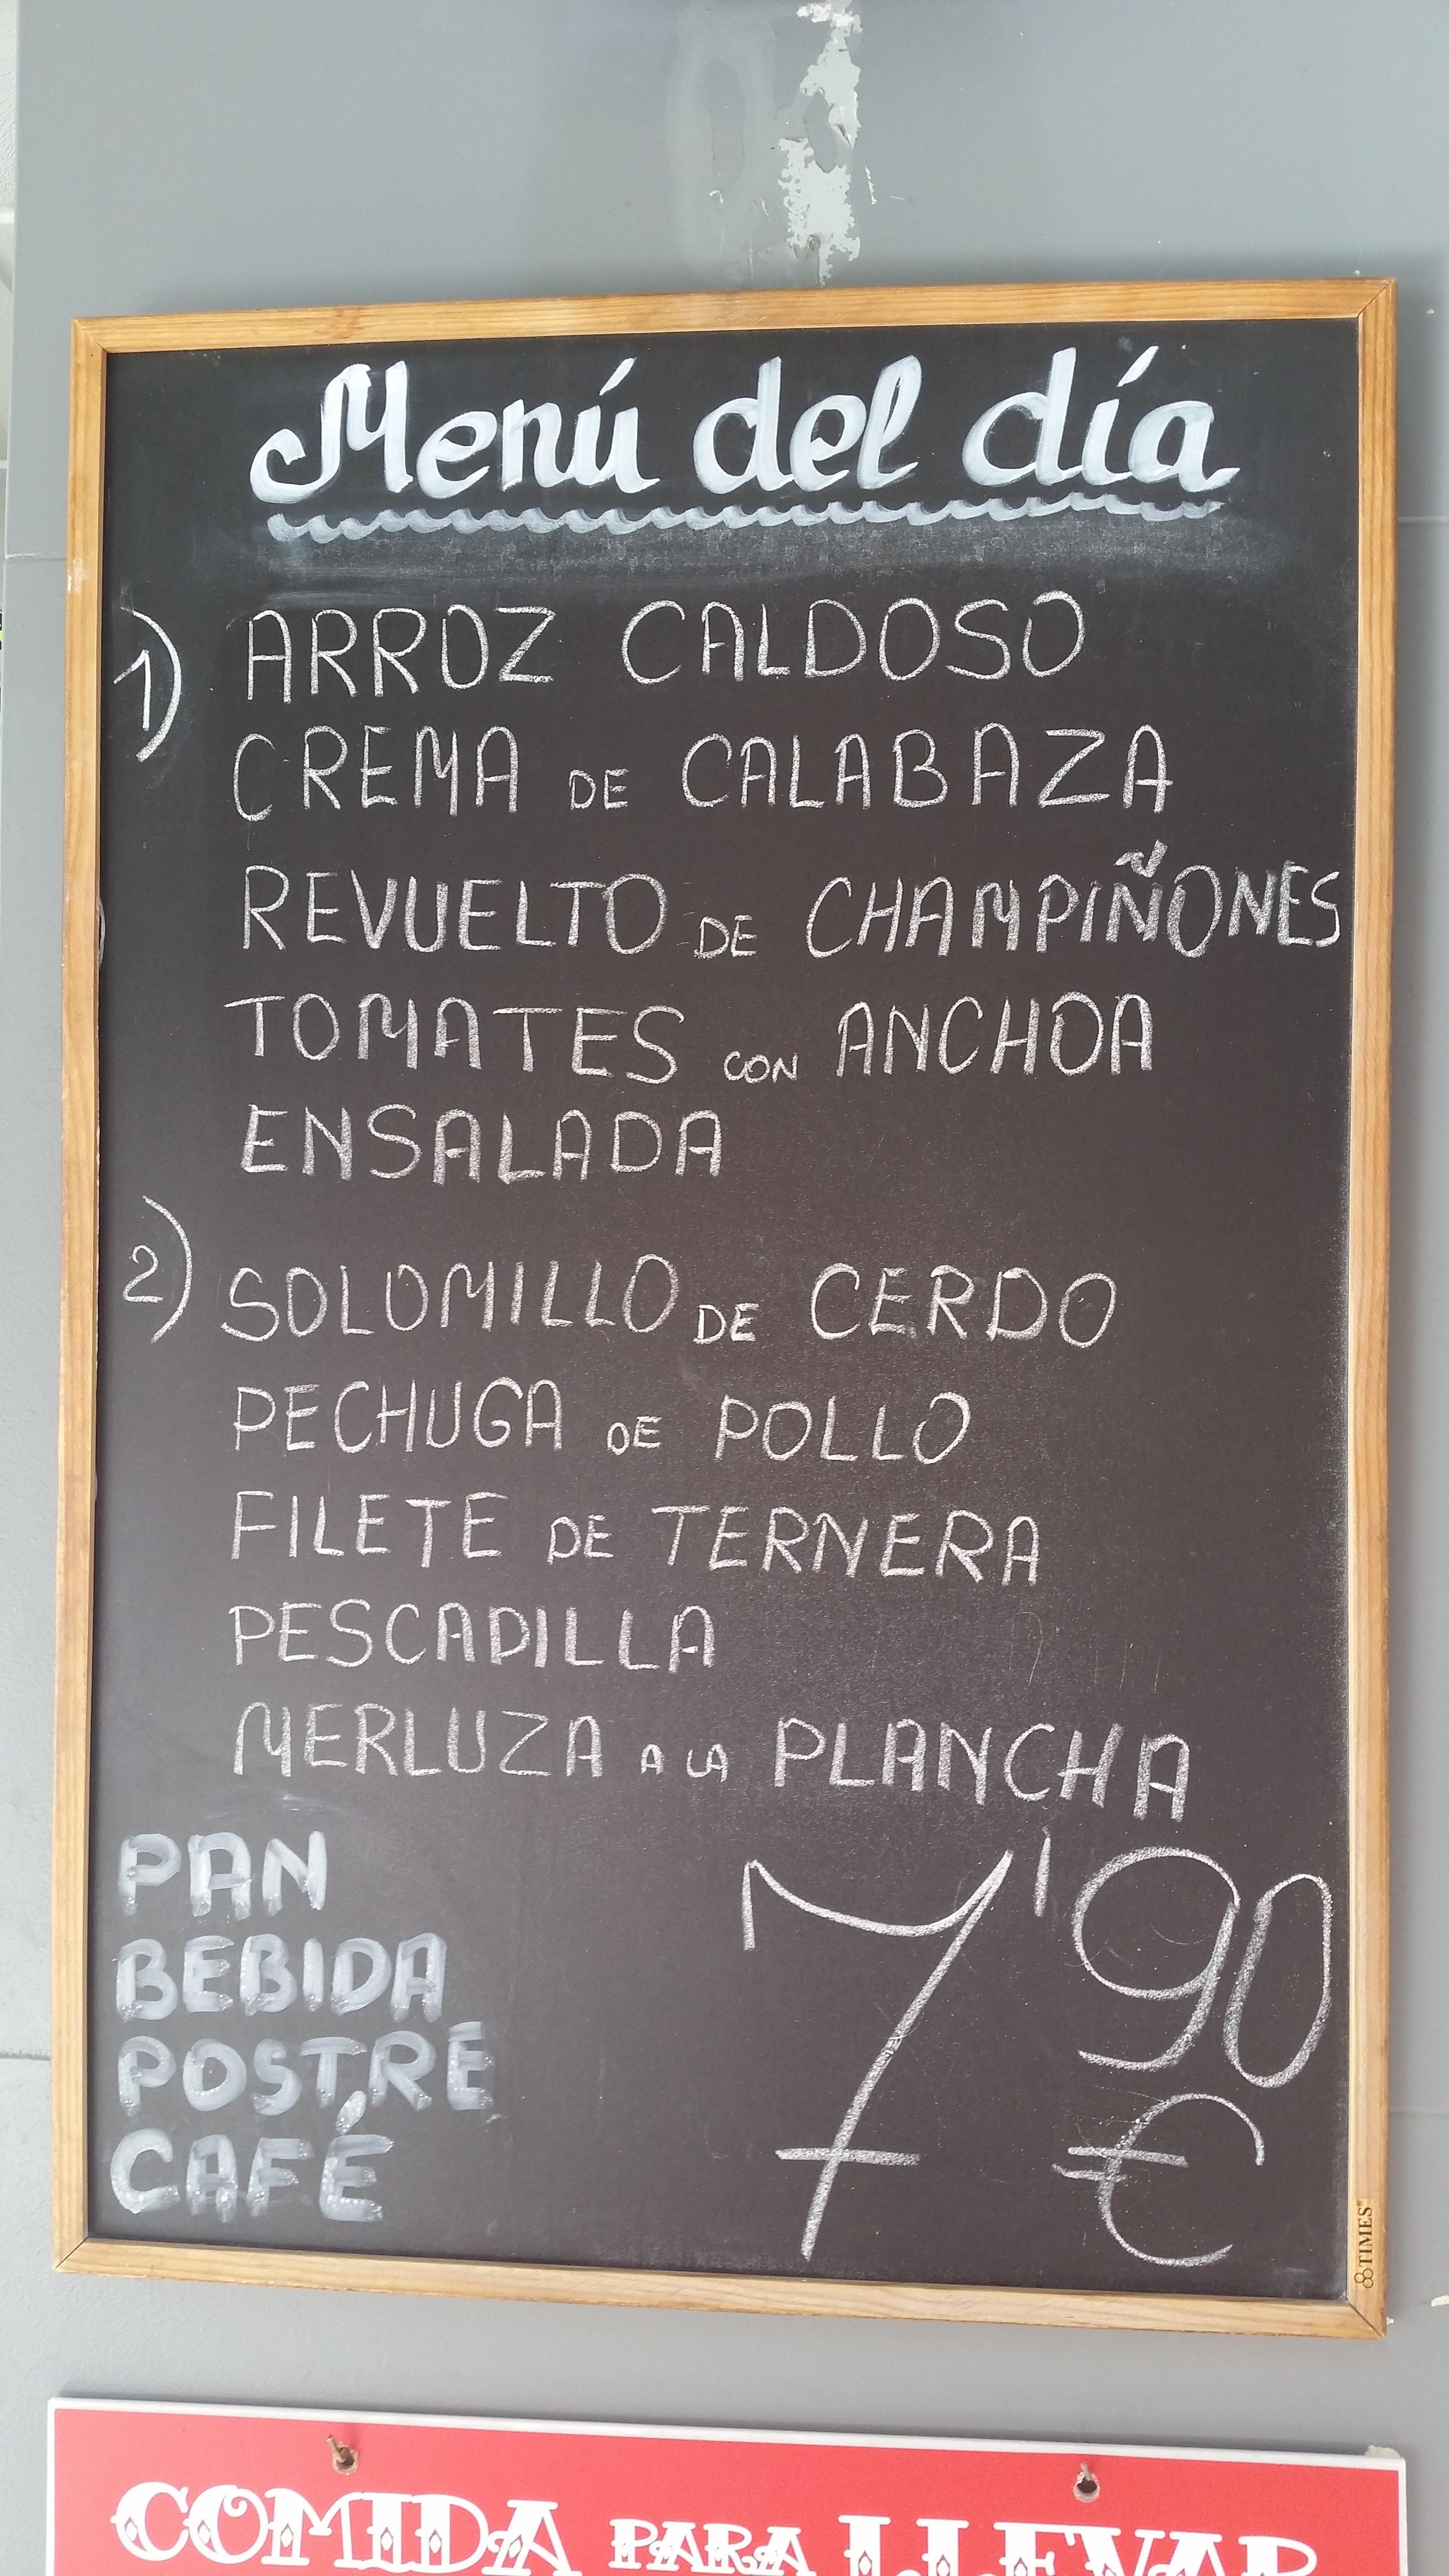 Menú del día
1) ARROZ CALDOSO
CREMA DE CALABAZA
REVUELTO DE CHAMPIÑONES
TOMATES CON ANCHOA
ENSALADA
2) SOLOMILLO DE CERDO
PECHUGA DE POLLO
FILETE DE TERNERA
PESCADILLA
MERLUZA A LA PLANCHA
PAN
BEBIDA
POSTRE
CAFÉ
7'90
€
TIMES
COMIDA PARA LLEVAR